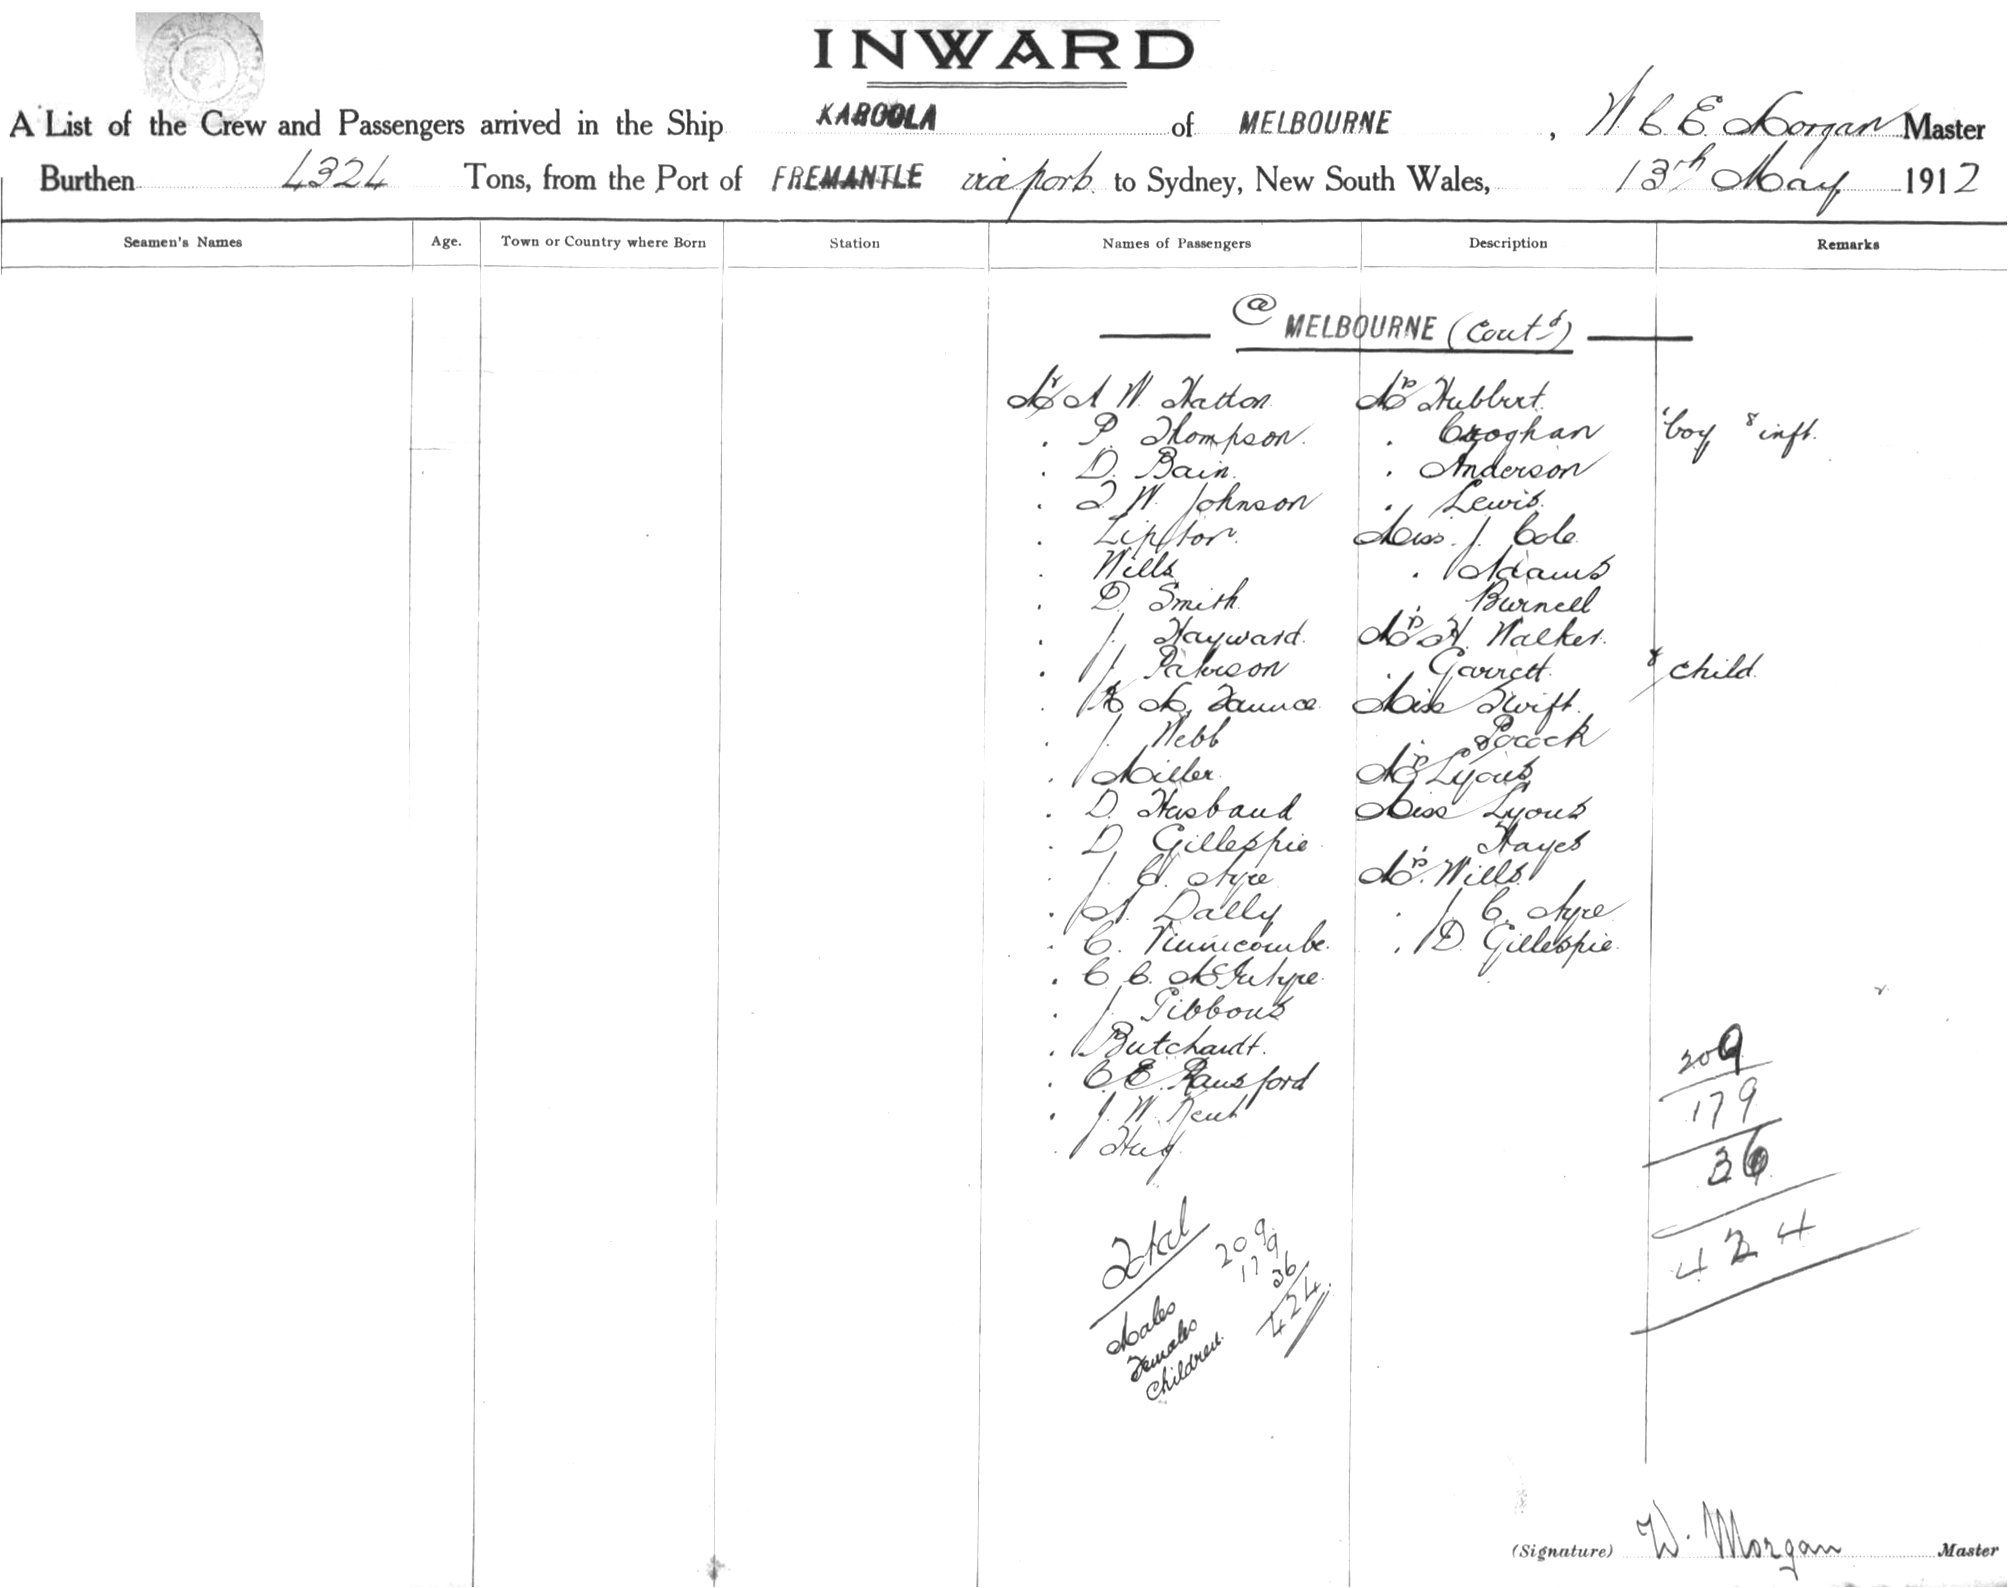 INWARD
A List of the Crew and Passengers arrived in the Ship KAROOLA of MELBOURNE, W C E Morgan Master
Burthen 4324 Tons, from the Port of FREMANTLE via ports to Sydney, New South Wales, 13th May 1912
Seamen's Names Age. Town or Country where Born Station Names of Passengers Description Remarks
@ MELBOURNE (Contd)
Mr A W Hatton Mrs Hubbert
. P. Thompson . Croghan boy & inft.
. D. Bain . Anderson
. T W Johnson . Lewis
. Lipton Miss J. Cole
. Wills . Adams
. D. Smith . Burnell
. J. Hayward Mrs H. Walker
. J. Paterson . Garrett & child
. M. Faunce Miss Swift
. J. Webb . Pocock
. Miller Mrs Lyons
. D. Husband Miss Lyons
. D. Gillespie . Hayes
. J. C. Ayre Mrs Wills
. A. Dally . J. C. Ayre
. C. Vinnicombe . D. Gillespie
. C. C. McIntyre
. J. Gibbons
. Butchardt.
. C. E. Rausford
. J. W. Kent
. Hug
209
179
36
424
Total
Males 209
Females 179
Children 36
424
(Signature) W. Morgan Master